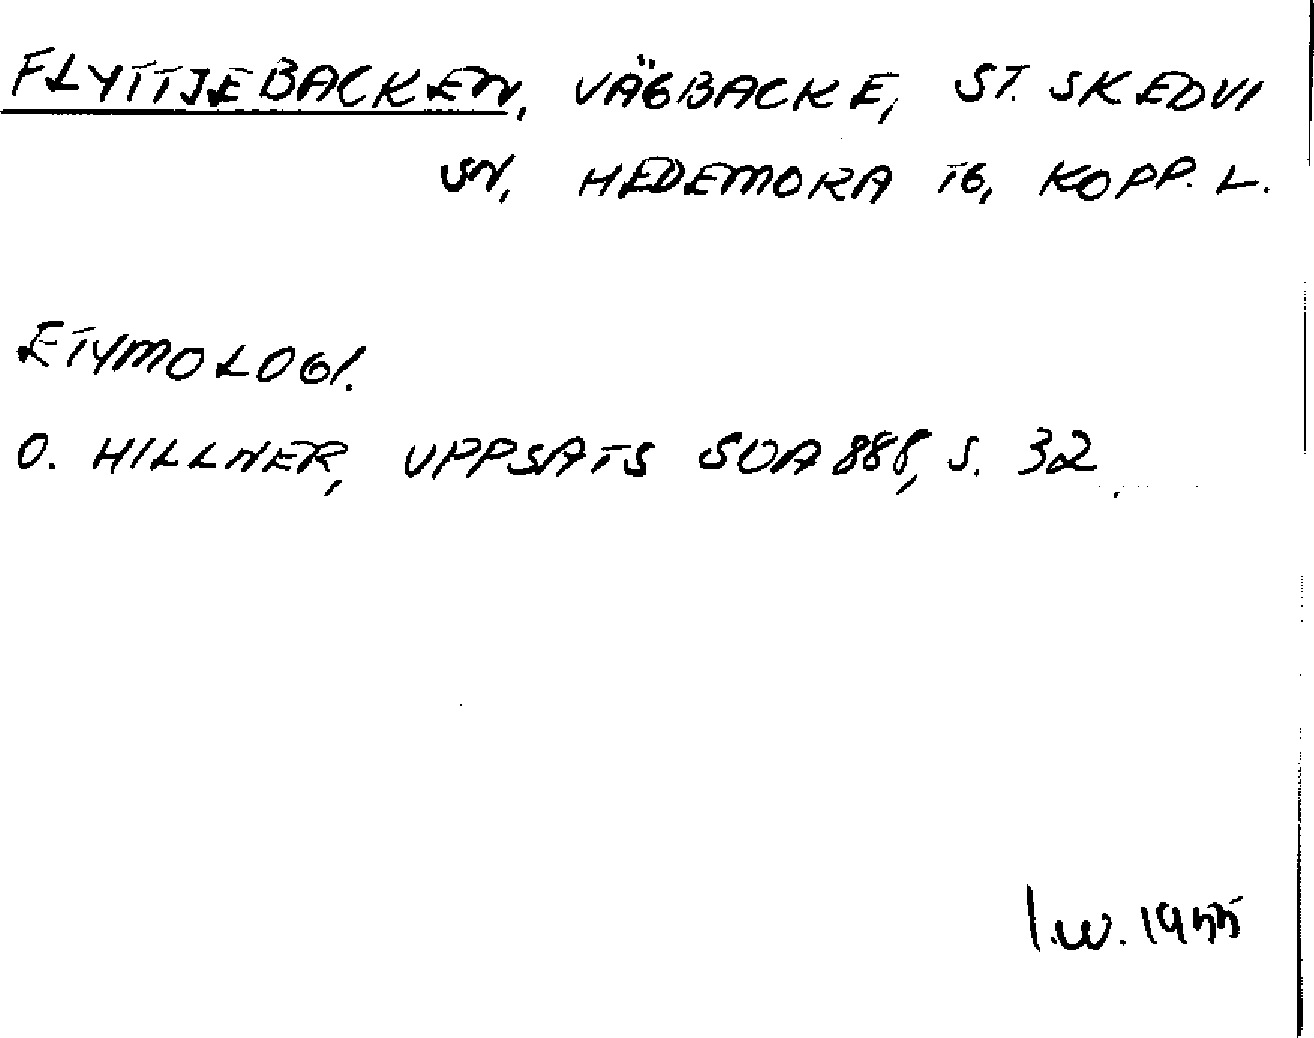 FLYTTJEBACKEN, VÄGBACKE, ST. SKEDVI
SN, HEDEMORA TG, KOPP. L.
ETYMOLOGI.
O. HILLNER, UPPSATS SOA 888, S. 32
I.W. 1955